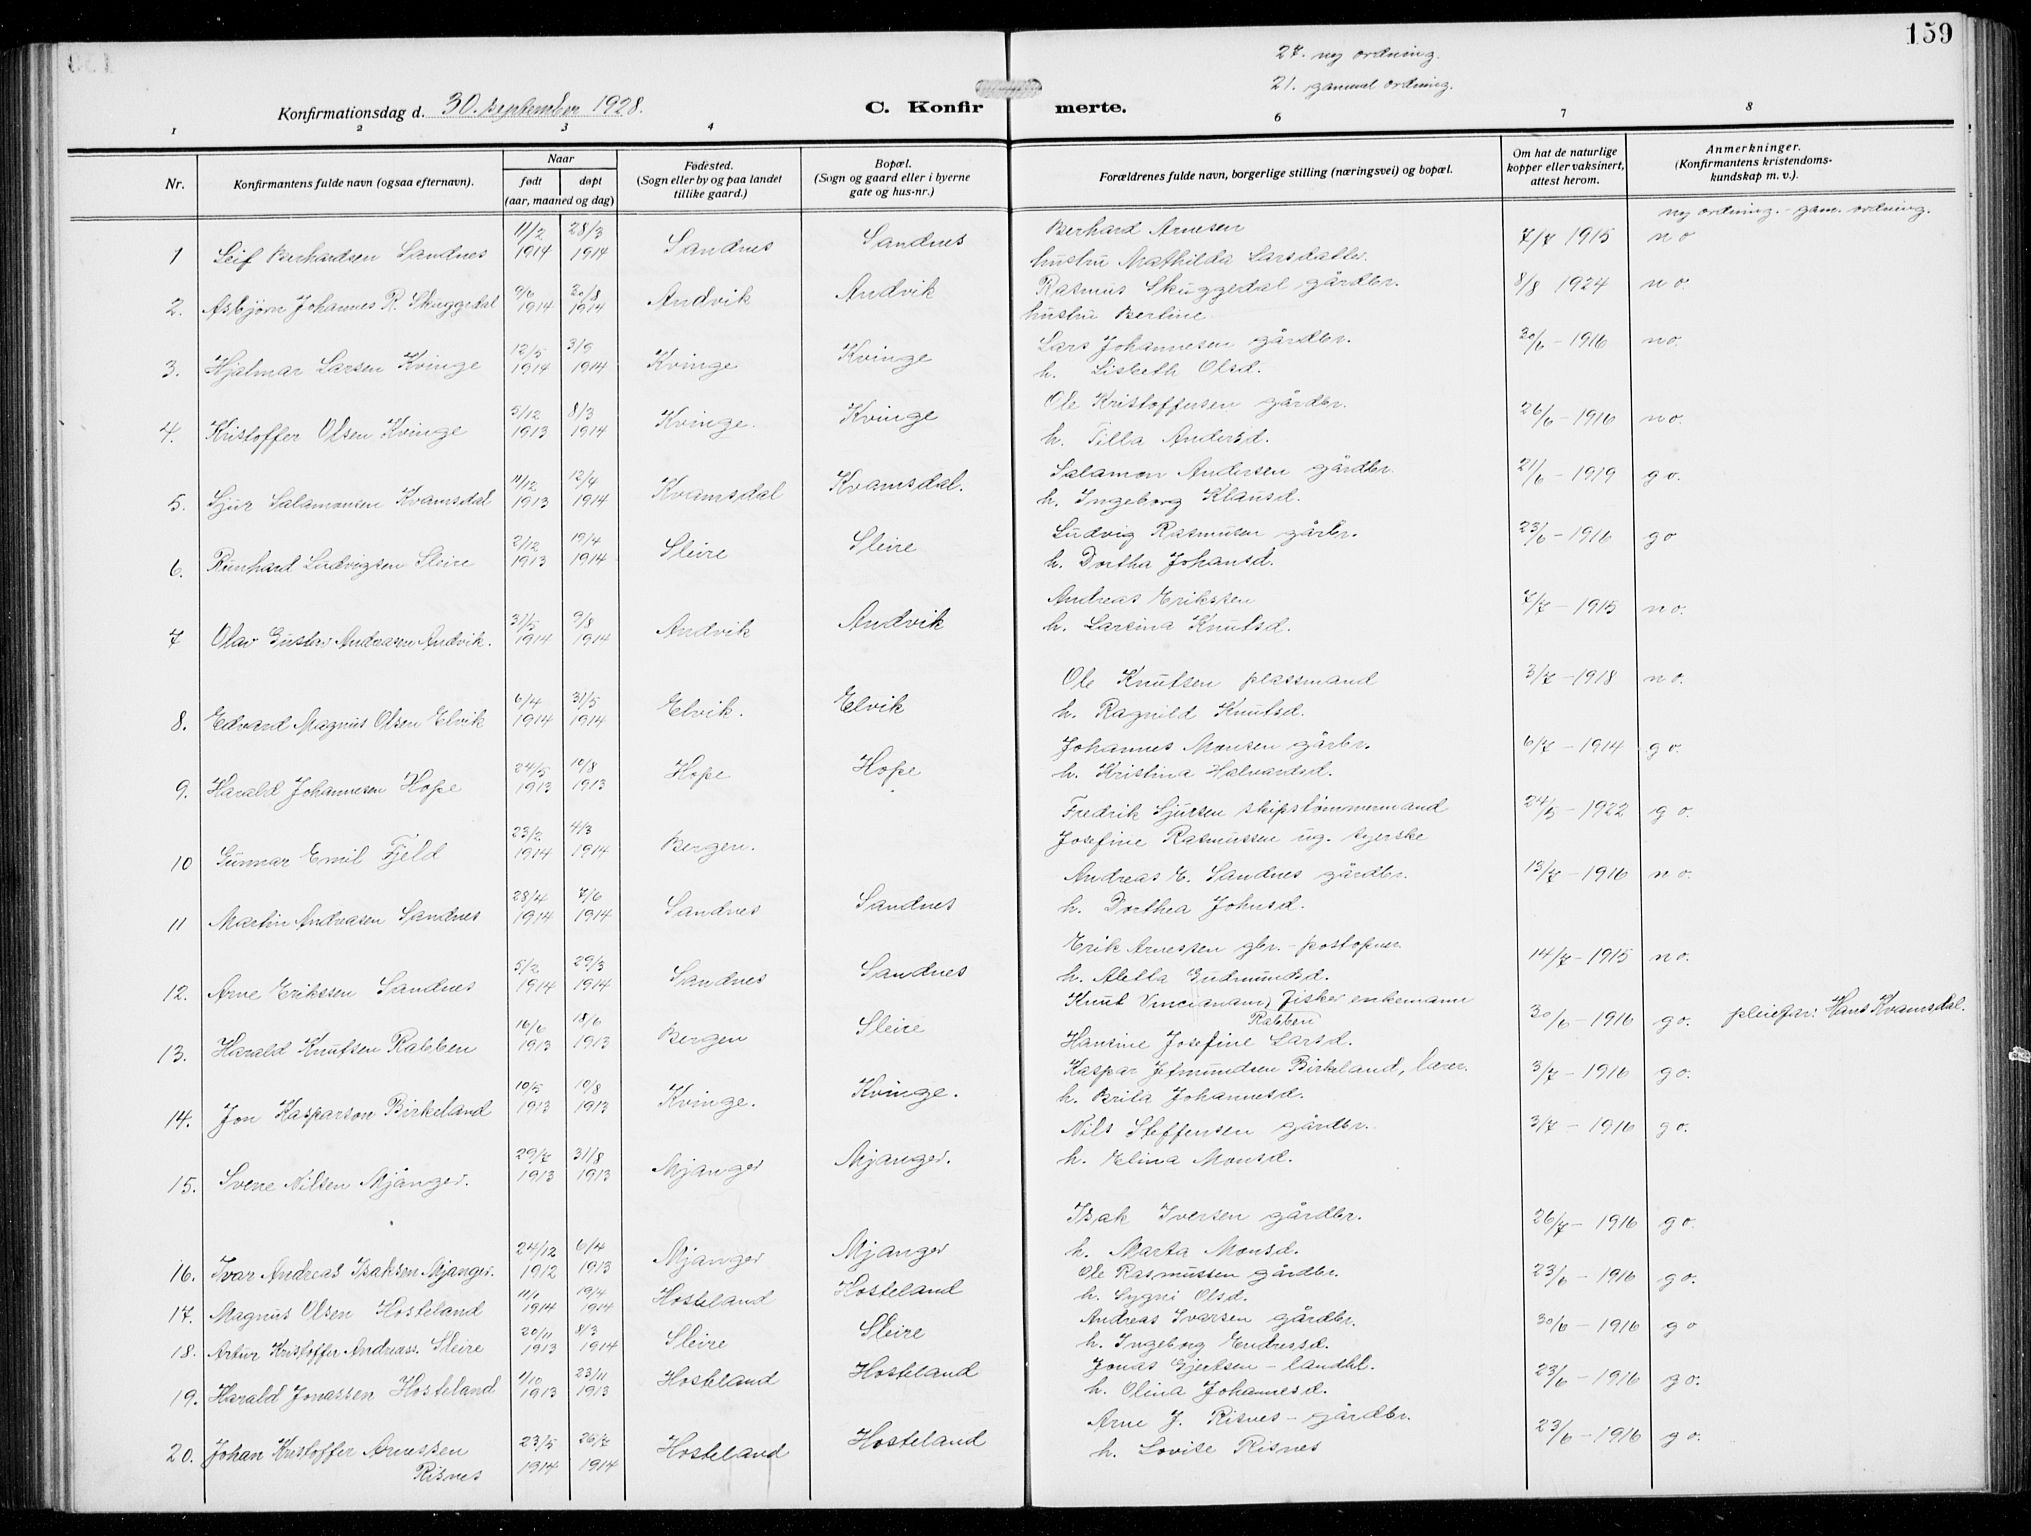 159
27. ny ordning.
21. gammal ordning.
Konfirmationsdag d. 30. september 1928.
C. Konfirmerte.
1 2 3 4 6 7 8
Nr.
Konfirmantens fulde navn (ogsaa efternavn).
Naar
født døpt
(aar, maaned og dag)
Fødested.
(Sogn eller by og paa landet
tillike gaard.)
Bopæl.
(Sogn og gaard eller i byerne
gate og hus-nr.)
Forældrenes fulde navn, borgerlige stilling (næringsvei) og bopæl.
Om hat de naturlige
kopper eller vaksinert,
attest herom.
Anmerkninger.
(Konfirmantens kristendoms-
kundskap m. v.).
ny ordning. - gam. ordning.
1 Leif Berhardsen Sandnes 11/2 1914 28/3 1914 Sandnes Sandnes Berhard Arnesen
hustru Mathilda Larsdatter. 7/7 1915 n o
2. Asbjørn Johannes R. Skuggedal 9/6 1914 30/8 1914 Andvik Andvik Rasmus Skuggedal gårdbr.
hustru Berline 8/8 1924 n o.
3. Hjalmar Larsen Kvinge 12/5 1914 3/9 1914 Kvinge Kvinge Lars Johannesen gårdbr.
h. Lisbeth Olsd. 30/6 - 1916 n o.
4. Kristoffer Olsen Kvinge 5/12 1913 8/3 1914 Kvinge. Kvinge Ole Kristoffersen gårdbr.
h. Tilla Andersd. 26/6 - 1916 n o.
5. Sjur Salamonsen Kvamsdal 11/12 1913 12/4 1914 Kvamsdal Kvamsdal. Salamon Andersen gårdbr.
h. Ingeborg Klausd. 21/6 - 1919 g o.
6. Reinhard Ludvigsen Sleire 2/12 1913 19/4 1914 Sleire Sleire Ludvig Rasmusen gårbr.
h. Dortha Johansd. 23/6 - 1916 g o
7 Olav Gustav Andreasen Andvik. 31/5 1914 9/8 1914 Andvik Andvik Andreas Erikssen
h. Larsina Knutsd. 7/7 - 1915 n o.
8. Edvard Magnus Olsen Elvik 6/4 1914 31/5 1914 Elvik. Elvik Ole Knutsen plassmand
h. Ragnild Knutsd. 3/7 - 1918 n o.
9. Harald Johannesen Hope 24/5 1913 10/8 1913 Hope Hope Johannes Monsen gårbr.
h. Kristina Halvardsd. 6/7 - 1914 g o.
10 Gunnar Emil Fjeld 23/2 1914 4/3 1914 Bergen. Fredrik Sjursen skipstømmermand
Josefine Rasmussen ug. tyerske 24/5 - 1922 g o.
11 Martin Andreasen Sandnes 28/4 1914 7/6 1914 Sandnes Sandnes Andreas E. Sandnes gårdbr.
h. Dorthea Johnsd. 13/7 - 1916 n o.
12. Arne Erikssen Sandnes 5/2 1914 29/3 1914 Sandnes Sandnes Erik Arnessen gbr. - postopner
h. Aletta Gudmundsd. 14/7 - 1915 n o.
13. Harald Knutsen Rabben 16/6 1913 18/6 1913 Bergen Sleire Knut fisker enkemann
Rabben
Hansine Josefine Larsd. 30/6 - 1916 g o. pleiefar: Hans Kvamsdal.
14. Jon Kasparson Birkeland 10/5 1913 10/8 1913 Kvinge. Kvinge. Kaspar Jetmundsen Birkeland, lærer.
h. Brita Johannesd. 3/7 - 1916 g o.
15. Svene Nilsen Mjånger. 29/7 1913 31/8 1913 Mjanger Mjanger. Nils Steffensen gårdbr.
h. Elina Monsd. 3/7 - 1916 g o.
16. Ivar Andreas Isaksen Mjanger. 24/12 1912 6/4 1913 Mjanger Mjanger Isak Iversen gårdbr.
h. Marta Monsd. 26/7 - 1916 g o.
17. Magnus Olsen Hosteland 11/1 1914 19/4 1914 Hosteland Hosteland Ole Rasmussen gårdbr.
h. Sygni Olsd. 23/6 - 1916 g o.
18. Artur Kristoffer Andreass. Sleire 20/11 1913 8/3 1914 Sleire Sleire Andreas Ivarsen gårdbr.
h. Ingeborg Endresd. 30/6 - 1916 g o
19. Harald Jonassen Hosteland 1/10 1913 23/11 1913 Hosteland Hosteland Jonas Gjertsen - landhl.
h. Olina Johannesd. 23/6 - 1916 g o.
20. Johan Kristoffer Arnessen
Risnes 23/5 1914 26/7 1914 Hosteland Hosteland Arne J. Risnes - gårdbr.
h. Lovise Risnes 23/6 - 1916 g o.